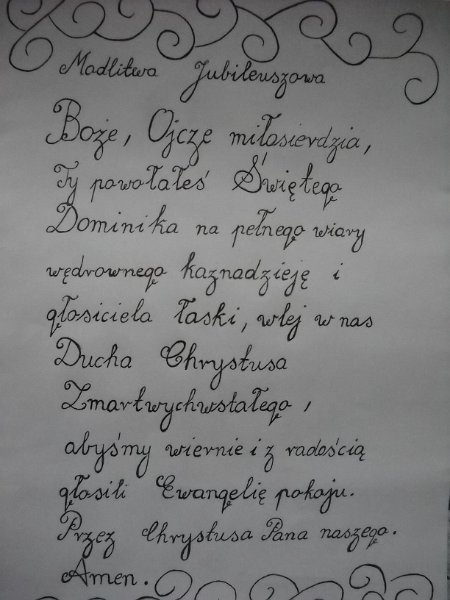 Modlitwa Jubileuszowa
Boże, Ojcze miłosierdzia,
Ty powołałeś Świętego
Dominika na pełnego wiary
wędrownego kaznadzieję i
głosiciela łaski, wlej w nas
Ducha Chrystusa
Zmartwychwstałego,
abyśmy wiernie i z radością
głosili Ewangelię pokoju.
Przez Chrystusa Pana naszego.
Amen.